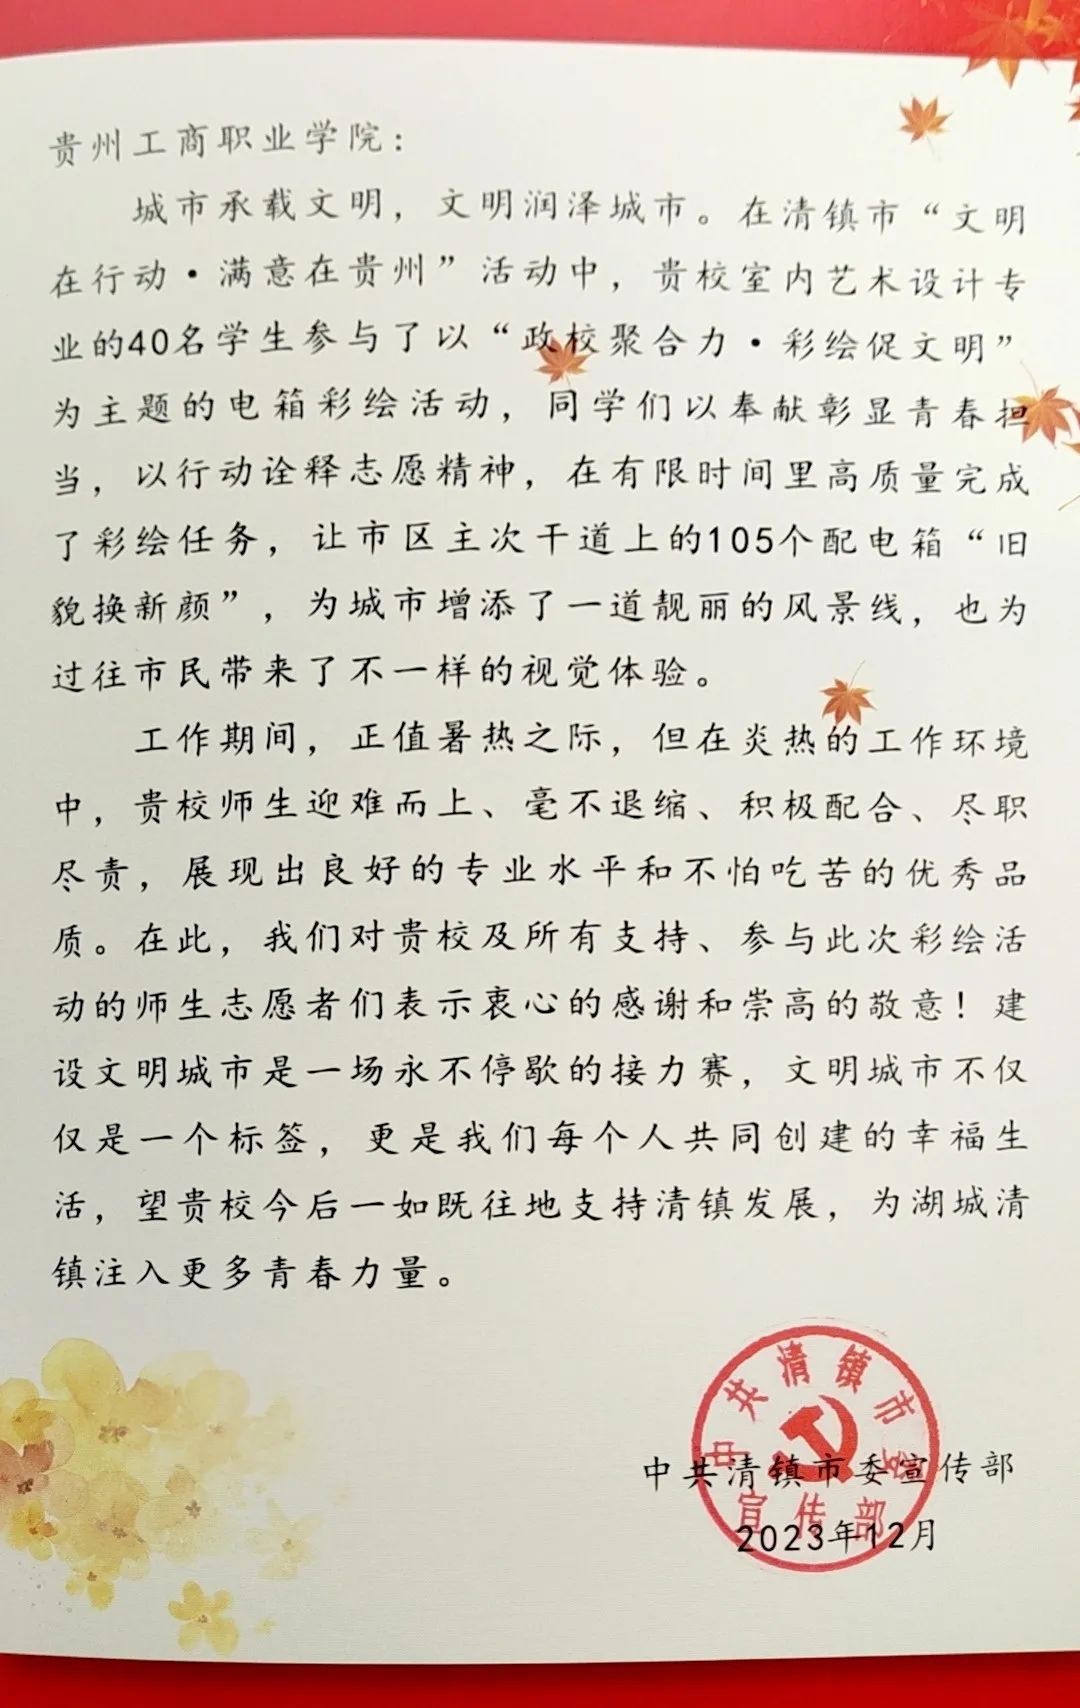 贵州工商职业学院：
城市承载文明，文明润泽城市。在清镇市“文明
在行动·满意在贵州”活动中，贵校室内艺术设计专
业的40名学生参与了以“政校聚合力·彩绘促文明”
为主题的电箱彩绘活动，同学们以奉献彰显青春担
当，以行动诠释志愿精神，在有限时间里高质量完成
了彩绘任务，让市区主次干道上的105个配电箱“旧
貌换新颜”，为城市增添了一道靓丽的风景线，也为
过往市民带来了不一样的视觉体验。
工作期间，正值暑热之际，但在炎热的工作环境
中，贵校师生迎难而上、毫不退缩、积极配合、尽职
尽责，展现出良好的专业水平和不怕吃苦的优秀品
质。在此，我们对贵校及所有支持、参与此次彩绘活
动的师生志愿者们表示衷心的感谢和崇高的敬意！建
设文明城市是一场永不停歇的接力赛，文明城市不仅
仅是一个标签，更是我们每个人共同创建的幸福生
活，望贵校今后一如既往地支持清镇发展，为湖城清
镇注入更多青春力量。
中共清镇市委宣传部
2023年12月
中共清镇市委
宣传部